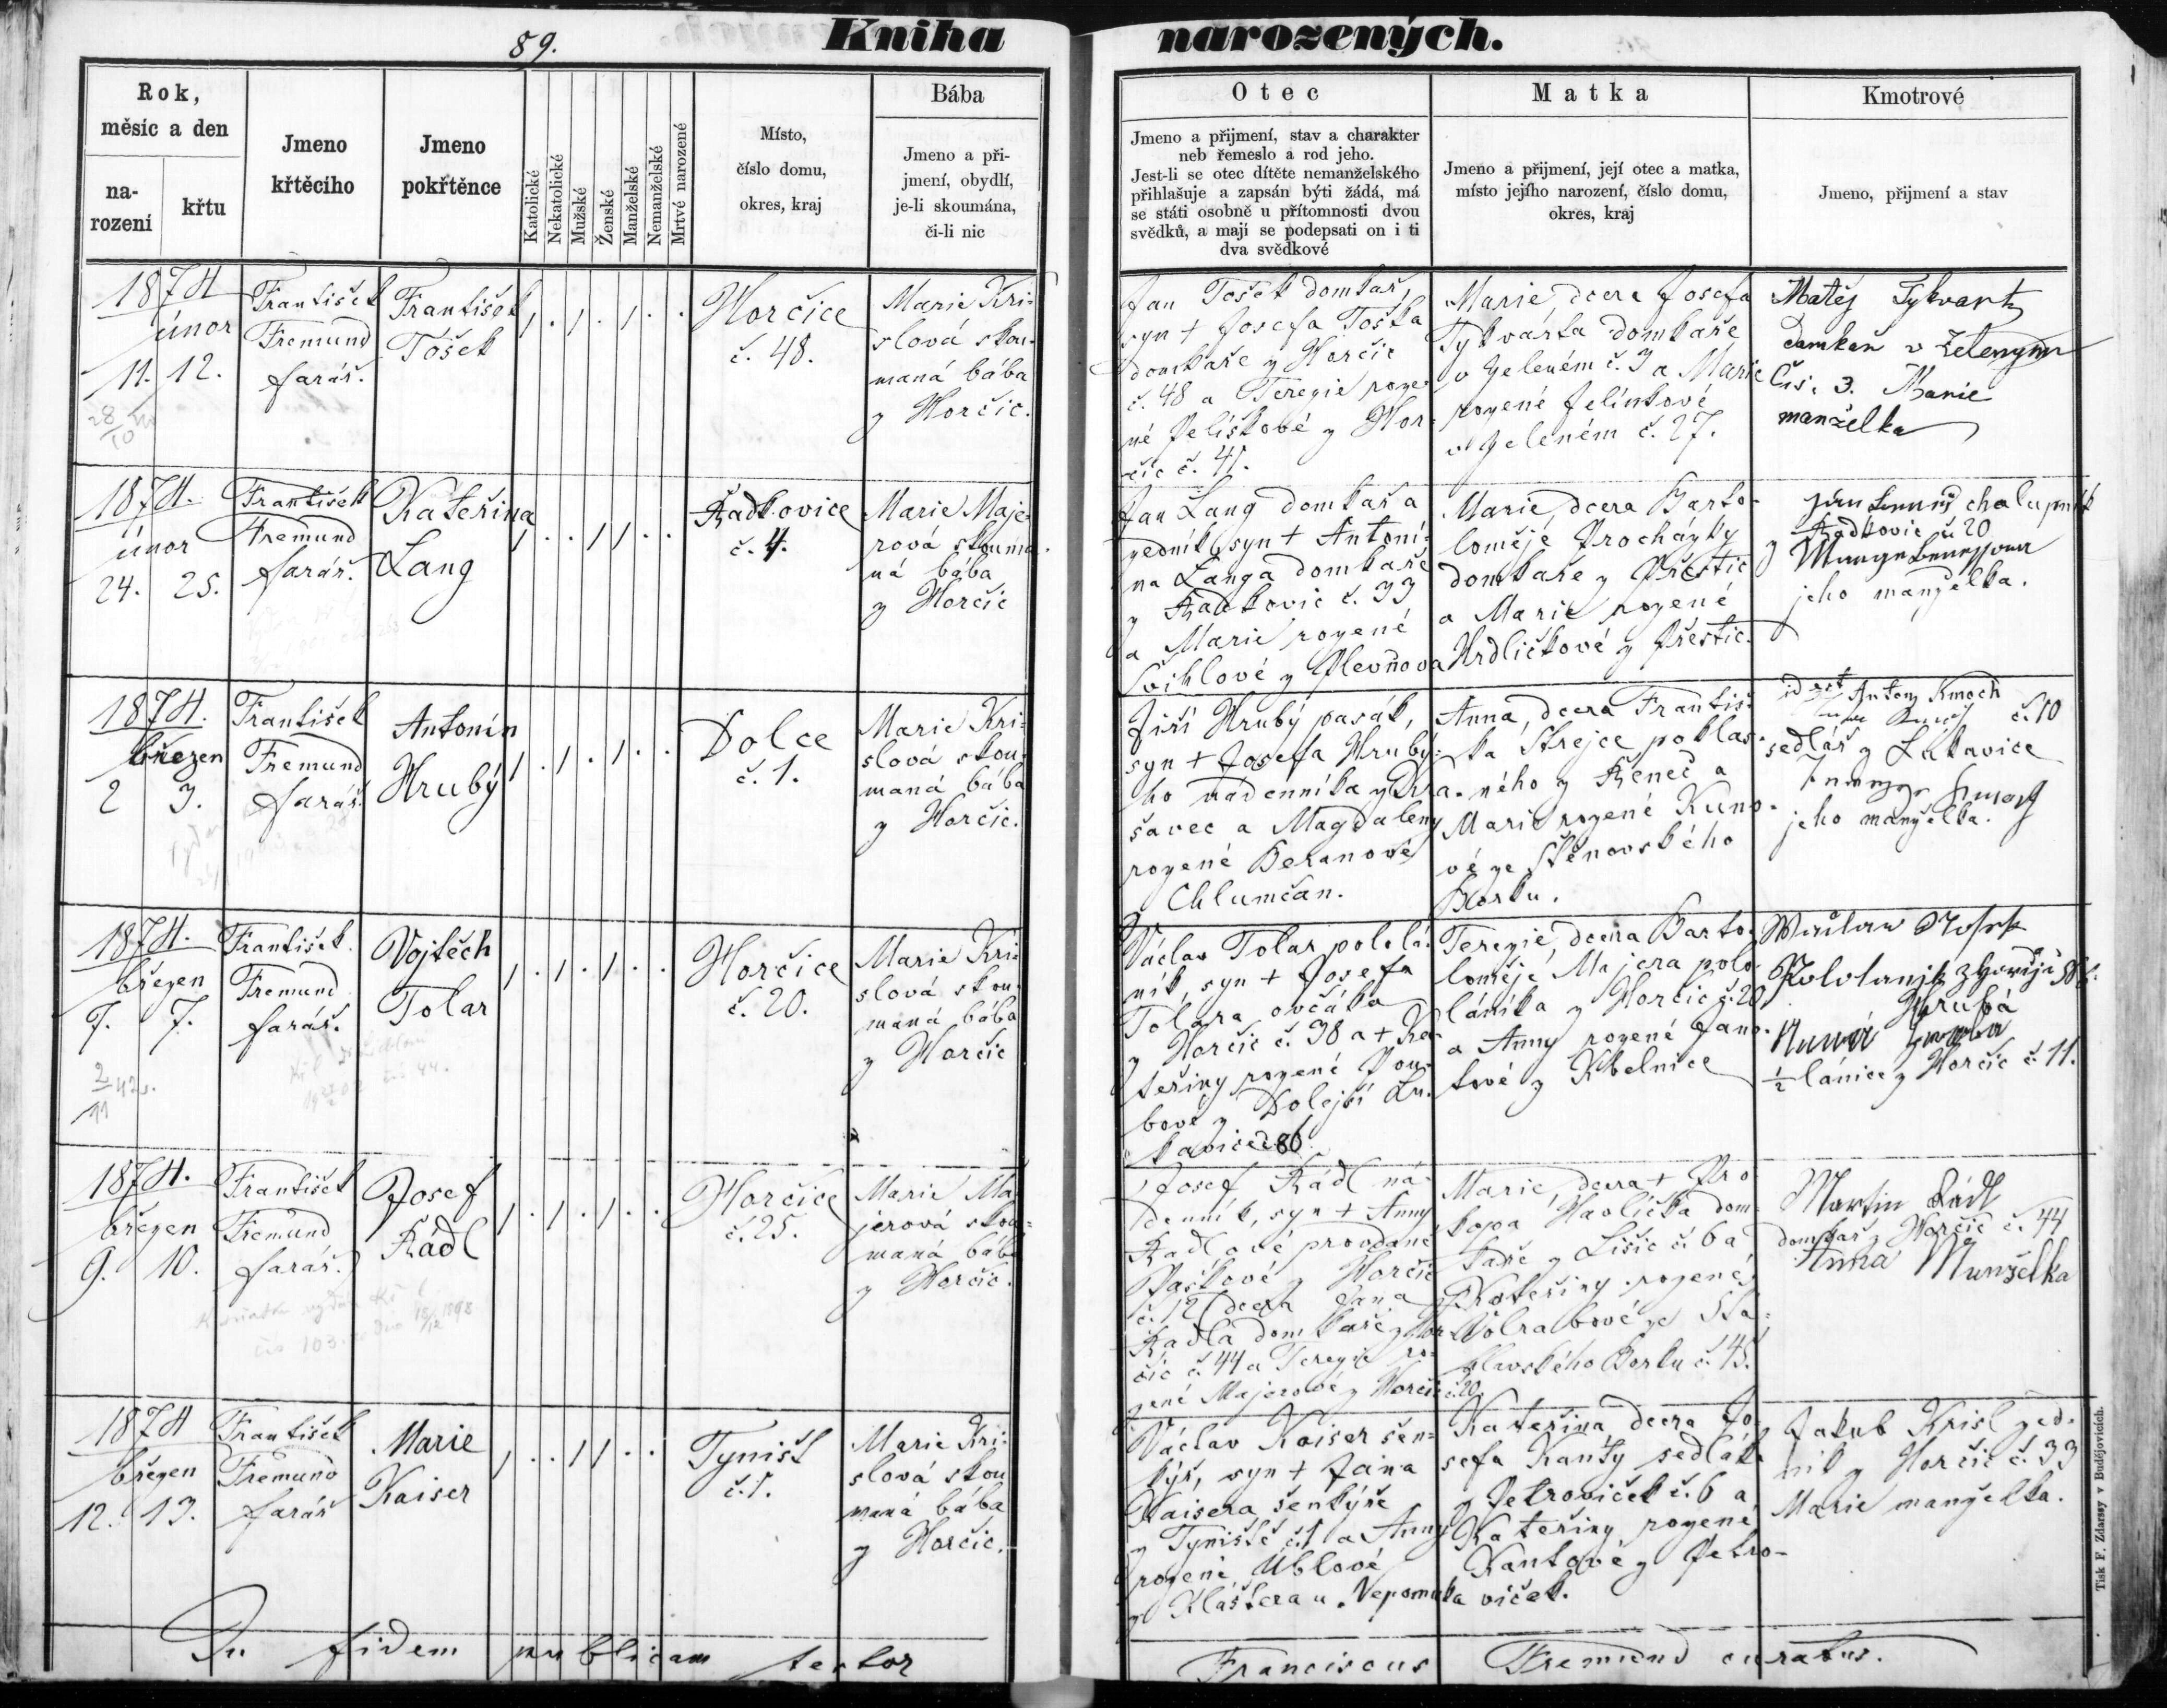 89.
Kniha narozených.
Rok,
měsíc a den
na-
rození
křtu
Jmeno
křtěcího
Jmeno
pokřtěnce
Katolické
Nekatolické
Mužské
Ženské
Manželské
Nemanželské
Mrtvé narozené
Místo,
číslo domu,
okres, kraj
Bába
Jmeno a při-
jmení, obydlí,
je-li skoumána,
či-li nic
Otec
Jmeno a přijmení, stav a charakter
neb řemeslo a rod jeho.
Jest-li se otec dítěte nemanželského
přihlašuje a zapsán býti žádá, má
se státi osobně u přítomnosti dvou
svědků, a mají se podepsati on i ti
dva svědkové
Matka
Jmeno a přijmení, její otec a matka,
místo jejího narození, číslo domu,
okres, kraj
Kmotrové
Jmeno, přijmení a stav
1874
únor
11. 12.
28/10
František
Fremund
farář.
František
Tošek
Horčice
č. 48.
Marie Kri-
slová skou-
maná bába
z Horčic.
Jan Tošek domkář,
syn + Josefa Toška
domkáře z Horčic
č. 48 a Terezie roze-
né Jelíškové z Hor-
čic č. 41.
Marie, dcera Josefa
Tykvarta domkáře
v Zeleném č. 3 a Marie
rozené Jelínkové
v Zeleném č. 27.
Matěj Tykvart
damkař v Zelenym
Čis. 3. Marie
manželka
1874.
únor
24. 25.
František
Fremund
farář.
Kateřina
Lang
Řadkovice
č. 4.
Marie Maje-
rová skouma-
ná bába
z Horčic
Jan Lang domkář a
zedník, syn + Antoní-
na Langa domkáře
z Řadkovic č. 33
a Marie rozené
Švihlové z Plevňova
Marie, dcera Barto-
loměje Procházky
domkáře z Přestic
a Marie rozené
Hrdličkové z Přestic.
chalupník
z Řadkovic č. 20
jeho manželka.
1874.
březen
2 3.
František
Fremund
farář.
Antonín
Hrubý
Dolce
č. 1.
Marie Kri-
slová skou-
maná bába
z Horčic.
Jiří Hrubý pasák,
syn + Josefa Hrubý-
ho nádenníka z Kra-
šavec a Magdaleny
rozené Beranové
Chlumčan.
Anna, dcera Františ-
ka Strejce poklas-
ného z Řeneč a
Marie rozené Kuno-
vé ze Štěnovského
Borku.
id est Antony Kmoch
č. 10
sedlář z Lukavice
jeho manželka.
1874.
březen
7. 7.
2/11 42.
František
Fremund
farář.
Vojtěch
Tolar
Horčice
č. 20.
Marie Kri-
slová skou-
maná bába
z Horčic
Václav Tolar pololá-
ník, syn + Josefa
Tolara ovčáka
z Horčic č. 38 a + Ka-
teřiny rozené Dou-
bové z Dolejší Lu-
kavice č. 86
Terezie, dcera Barto-
loměje Majera polo-
láníka z Horčic č. 20
a Anny rozené Jano-
tové z Kbelnice
Hrubá
½ lánice z Horčic č. 11.
1874.
březen
9. 10.
František
Fremund
farář.
Josef
Rádl
Horčice
č. 25.
Marie Ma-
jerová skou-
maná bába
z Horčic.
Josef Rádl ná-
denník, syn + Anny
Rádlové provdané
Paškové z Horčic
č. 12 (dcera Jana
Rádla domkáře z Hor-
čic č. 44 a Terezie ro-
zené Majerové z Horčic č. 20.
Marie, dcera + Pro-
kopa Havlíčka dom-
káře z Lišic č. 6 a
Kateřiny rozené
Kolrabové ze Sta-
hlavského Borku č. 45.
Martin Rádl
domkář z Horčic č. 44
Anna Munželka
1874
březen
12. 13.
František
Fremund
farář
Marie
Kaiser
Tyništ
č. 1.
Marie Kri-
slová skou-
maná bába
z Horčic.
Václav Kaiser šen-
kýř, syn + Jana
Kaisera šenkýře
z Tyniště č. 1 a Anny
rozené Ublové
z Kláštera u Nepomuka
Kateřina dcera Jo-
sefa Kanty sedláka
z Petroviček č. 6 a
Kateřiny rozené
Kantové z Petro-
viček.
Jakub Krisl zed-
ník z Horčic č. 33
Marie manželka.
In fidem publicam testor
Franciscus Fremund curatus.
Tisk F. Zdarssy v Budějovicích.